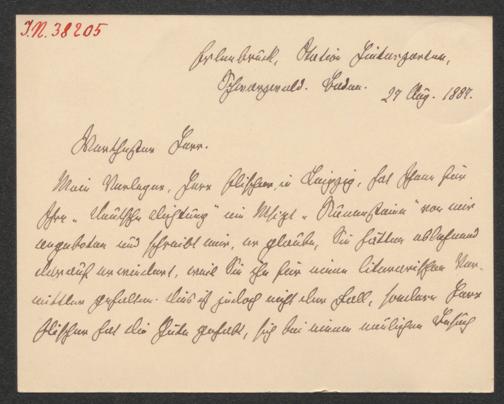 I.N. 38205
Erlenbruck, Station Hintergarten,
Schwarzwald. Baden.
27 Aug. 1887.
Werthester Herr.
Mein Verleger, Herr Elischer in Leipzig, hat Ihnen für
Ihre „Deutsche Dichtung" ein Mscpt. „ " von mir
angeboten und schreibt mir, er glaube, Sie hätten ablehnend
darauf erwiedert, weil Sie ihn für einen literarischen Ver-
mittler gehalten. Dies ist jedoch nicht der Fall, sondern Herr
Elischer hat die Güte gehabt, sich bei einem neulichen Besuch